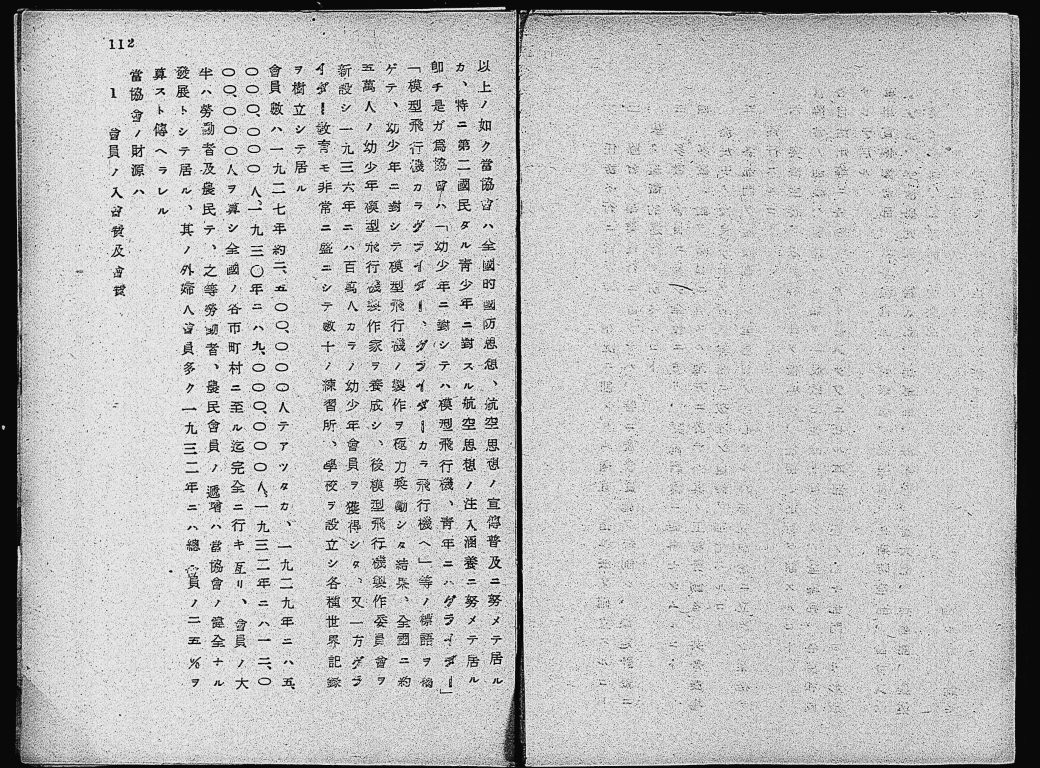 112
以上ノ如ク當協會ハ全國的國防思想、航空思想ノ宣傳普及ニ努メテ居ル
カ、特ニ第二國民タル青少年ニ對スル航空思想ノ注入涵養ニ努メテ居ル
卽チ是ガ爲協會ハ「幼少年ニ對シテハ模型飛行機、青年ニハグライダー」
「模型飛行機カラグライダー、グライダーカラ飛行機ヘ」等ノ標語ヲ揭
ゲテ、幼少年ニ對シテ模型飛行機ノ製作ヲ極力奬勵シタ結果、全國ニ約
五萬人ノ幼少年模型飛行機製作家ヲ養成シ、後模型飛行機製作委員會ヲ
新設シ一九三六年ニハ百萬人カラノ幼少年會員ヲ獲得シタ、又一方グラ
イダー敎育モ非常ニ盛ニシテ數十ノ練習所、學校ヲ設立シ各種世界記錄
ヲ樹立シテ居ル
會員數ハ一九二七年約二、五〇〇、〇〇〇人テアツタカ、一九二九年ニハ五、
〇〇〇、〇〇〇人、一九三〇年ニハ九、〇〇〇、〇〇〇人、一九三二年ニハ一二、〇
〇〇、〇〇〇人ヲ算シ全國ノ各市町村ニ至ル迄完全ニ行キ亙リ、會員ノ大
半ハ勞働者及農民テ、之等勞働者、農民會員ノ遞增ハ當協會ノ健全ナル
發展トシテ居ル、其ノ外婦人會員多ク一九三二年ニハ總會員ノ二五%ヲ
算スト傳ヘラレル
當協會ノ財源ハ
1 會員ノ入會費及會費